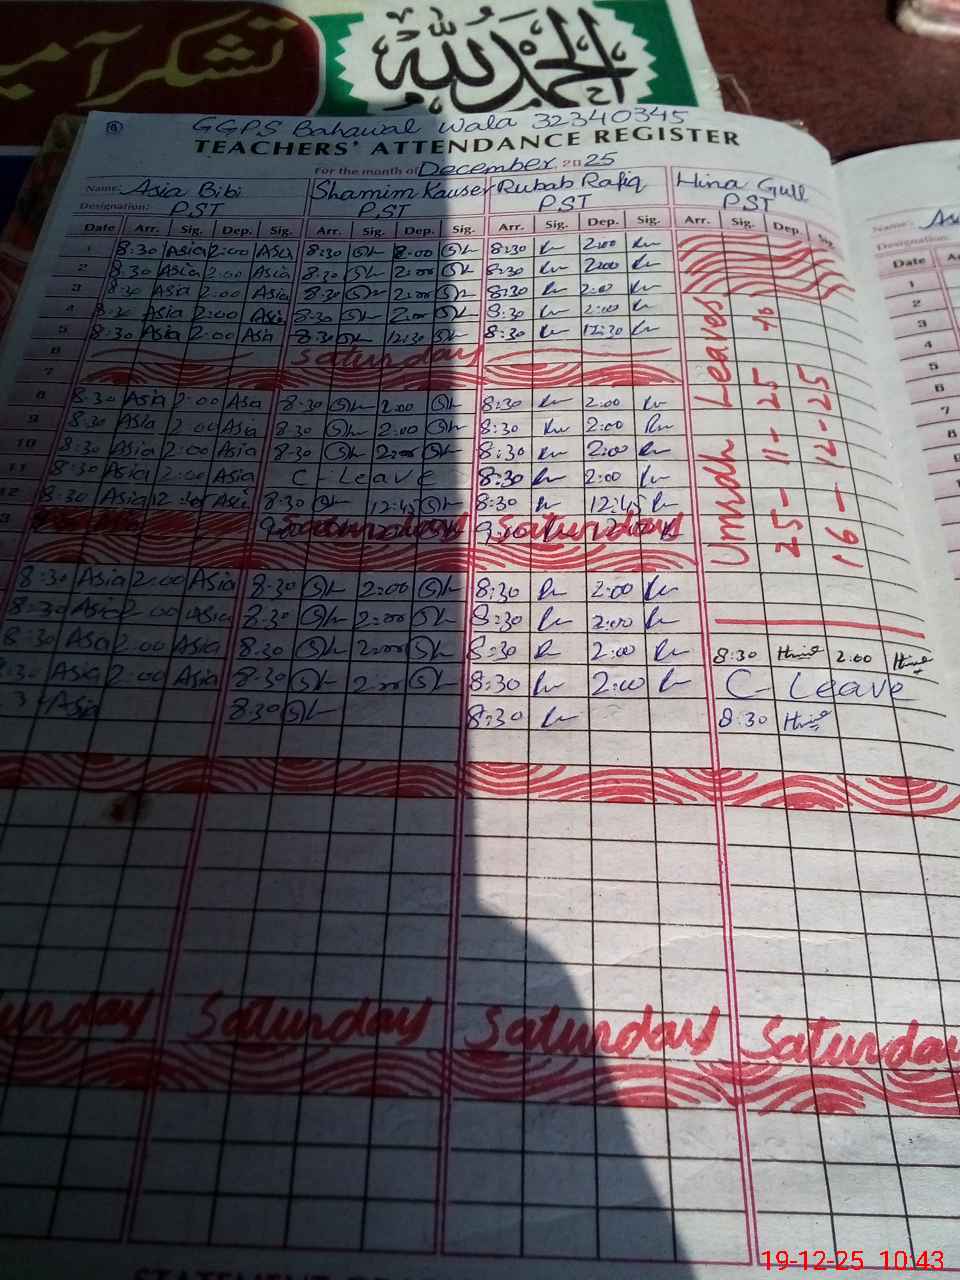 تشکر آمیز
الحمد لله
GGPS Bahawal Wala 32340345
TEACHERS' ATTENDANCE REGISTER
For the month of December 2025
Name: Asia Bibi Shamim Kauser Rubab Rafiq Hina Gull
Designation: PST PST PST PST
Date Arr. Sig. Dep. Sig. Arr. Sig. Dep. Sig. Arr. Sig. Dep. Sig. Arr. Sig. Dep. Sig.
1 8:30 Asia 2:00 Asia 8:30 Sh 2:00 Sh 8:30 R 2:00 R
2 8:30 Asia 2:00 Asia 8:30 Sh 2:00 Sh 8:30 R 2:00 R
3 8:30 Asia 2:00 Asia 8:30 Sh 2:00 Sh 8:30 R 2:00 R
4 8:30 Asia 2:00 Asia 8:30 Sh 2:00 Sh 8:30 R 2:00 R
5 8:30 Asia 2:00 Asia 8:30 Sh 12:30 Sh 8:30 R 12:30 R
6 Saturday
7
8 8:30 Asia 2:00 Asia 8:30 Sh 2:00 Sh 8:30 R 2:00 R
9 8:30 Asia 2:00 Asia 8:30 Sh 2:00 Sh 8:30 R 2:00 R
10 8:30 Asia 2:00 Asia 8:30 Sh 2:00 Sh 8:30 R 2:00 R
11 8:30 Asia 2:00 Asia C-Leave 8:30 R 2:00 R
12 8:30 Asia 12:30 Asia 8:30 Sh 12:45 Sh 8:30 R 12:45 R
Saturday Saturday
Umrah Leaves
25-11-25 to
16-12-25
8:30 Asia 2:00 Asia 8:30 Sh 2:00 Sh 8:30 R 2:00 R
8:30 Asia 2:00 Asia 8:30 Sh 2:00 Sh 8:30 R 2:00 R
8:30 Asia 2:00 Asia 8:30 Sh 2:00 Sh 8:30 R 2:00 R 8:30 Hina 2:00 Hina
8:30 Asia 2:00 Asia 8:30 Sh 2:00 Sh 8:30 R 2:00 R C-Leave
Asia 8:30 Sh 8:30 R 8:30 Hina
Saturday Saturday Saturday
Name:
Designation:
Date
1
2
3
4
5
6
7
8
19-12-25 10:43